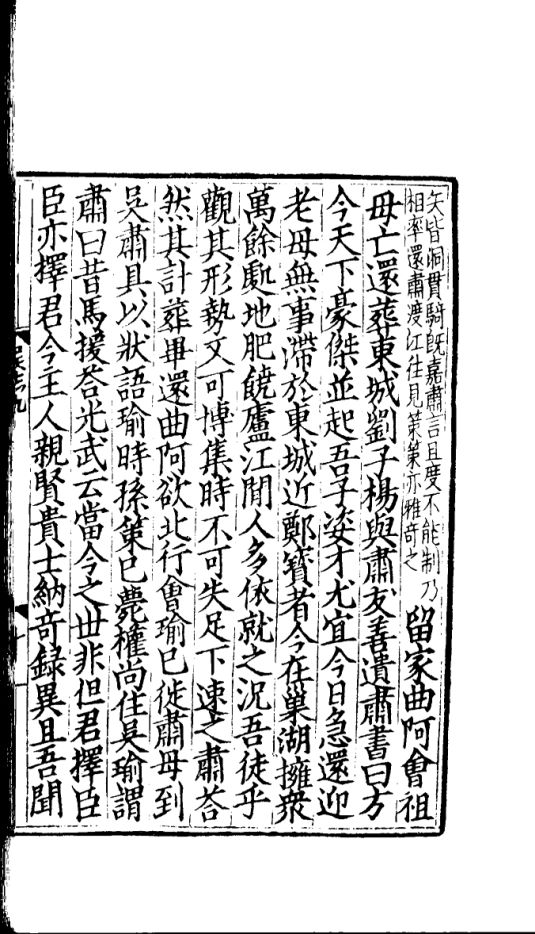 矢皆洞貫騎旣嘉肅言且度不能制乃
相率還肅渡江往見策策亦雅奇之
留家曲阿會祖
母亡還葬東城劉子楊與肅友善遺肅書曰方
今天下豪傑並起吾子姿才尤宜今日急還迎
老母無事滯於東城近鄭寶者今在巢湖擁衆
萬餘處地肥饒廬江閒人多依就之況吾徒乎
觀其形勢又可博集時不可失足下速之肅荅
然其計葬畢還曲阿欲北行會瑜已徙肅母到
吳肅具以狀語瑜時孫策已薨權尚住吳瑜謂
肅曰昔馬援荅光武云當今之世非但君擇臣
臣亦擇君今主人親賢貴士納奇錄異且吾聞
吳志九
十